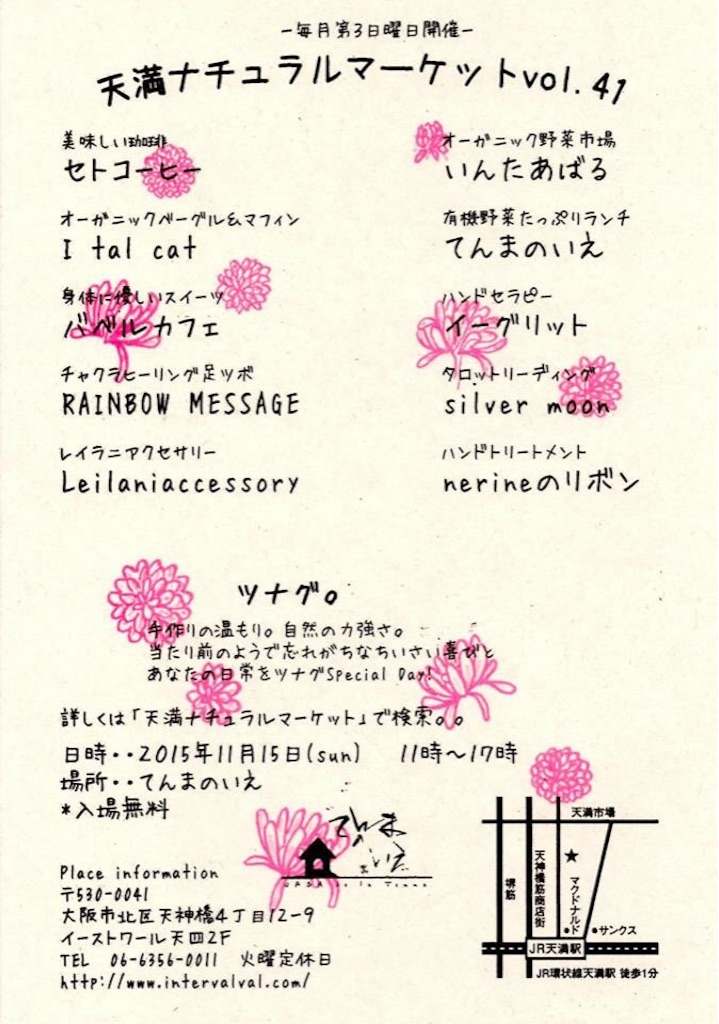 -毎月第3日曜日開催-
天満ナチュラルマーケットvol.41
美味しい珈琲
セトコーヒー
オーガニックベーグル&マフィン
I tal cat
身体に優しいスイーツ
バベルカフェ
チャクラヒーリング足ツボ
RAINBOW MESSAGE
レイラニアクセサリー
Leilaniaccessory
オーガニック野菜市場
いんたあばる
有機野菜たっぷりランチ
てんまのいえ
ハンドセラピー
イーグリット
タロットリーディング
silver moon
ハンドトリートメント
nerineのリボン
ツナグ。
手作りの温もり。自然の力強さ。
当たり前のようで忘れがちなちいさい喜びと
あなたの日常をツナグSpecial Day!
詳しくは「天満ナチュラルマーケット」で検索。。
日時・・2015年11月15日(sun) 11時〜17時
場所・・てんまのいえ
*入場無料
てんま
のいえ
Place information
〒530-0041
大阪市北区天神橋4丁目12-9
イーストワール天四2F
TEL 06-6356-0011 火曜定休日
http://www.intervalval.com/
天満市場
堺筋
天神橋筋商店街
★
マクドナルド
サンクス
JR天満駅
JR環状線天満駅 徒歩1分